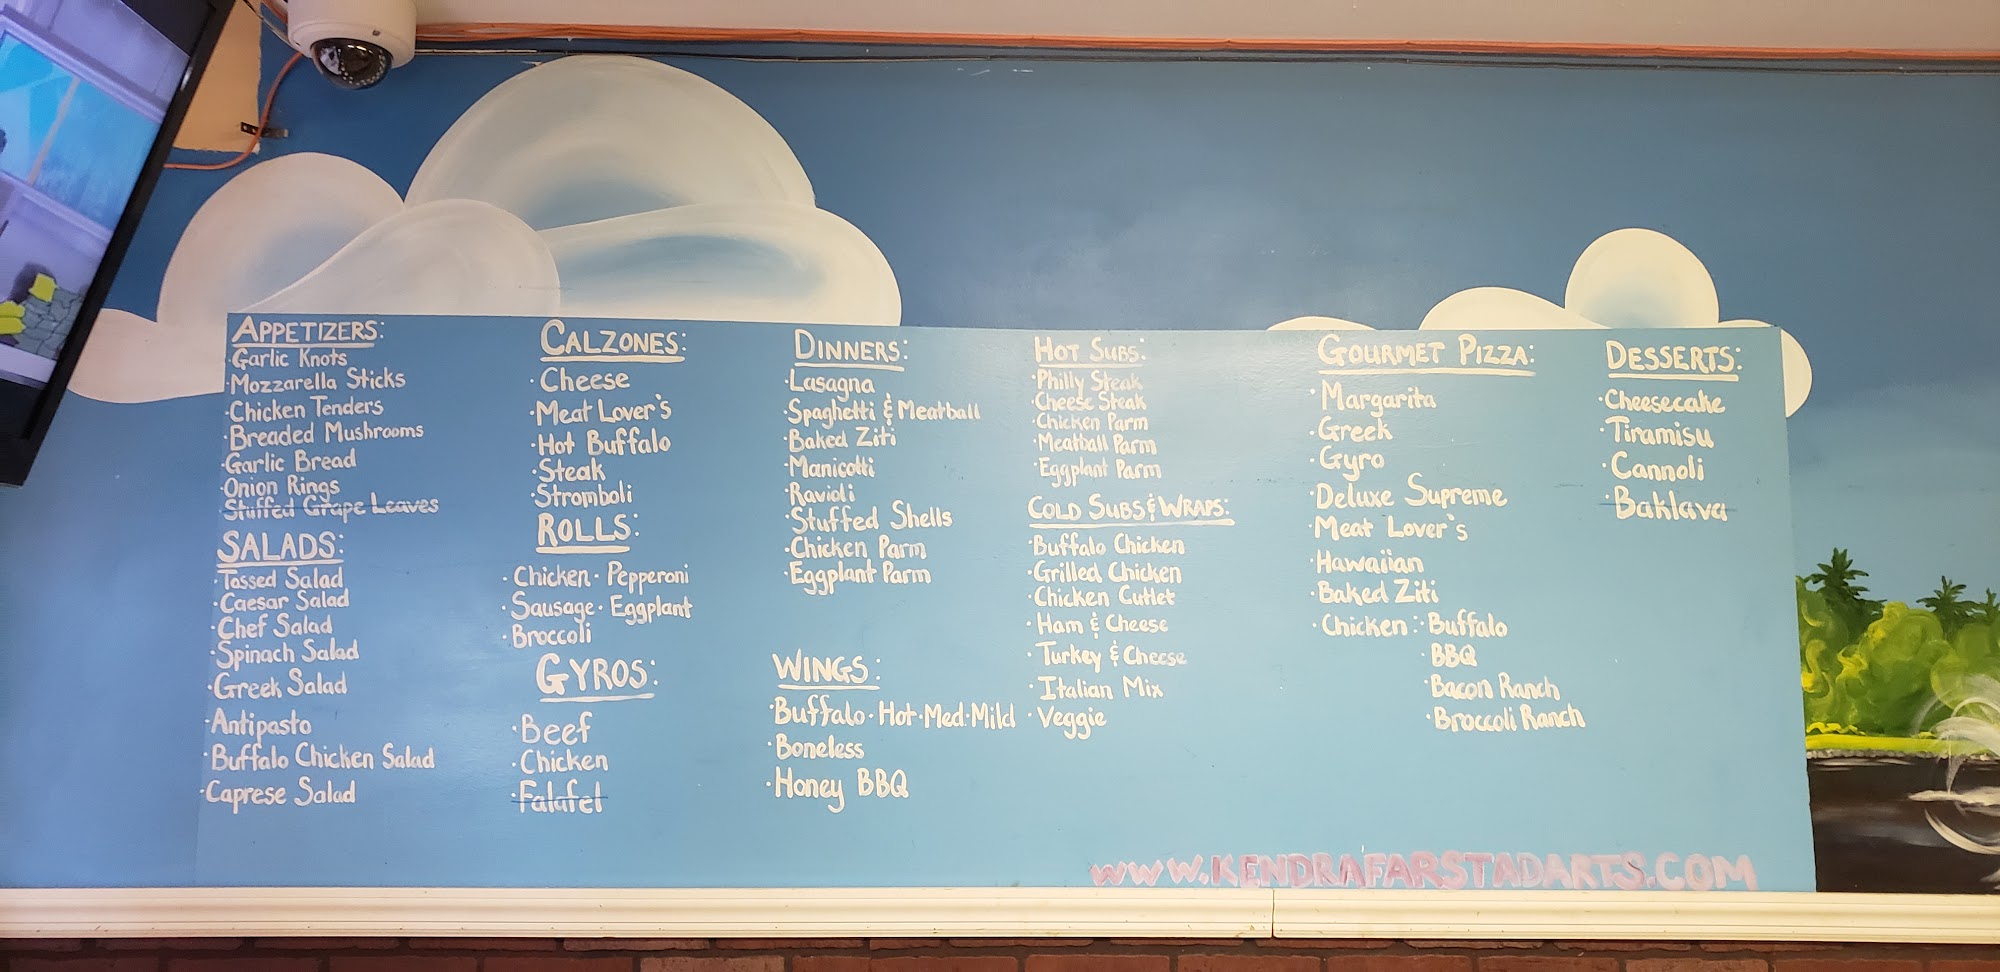 APPETIZERS:
·Garlic Knots
·Mozzarella Sticks
·Chicken Tenders
·Breaded Mushrooms
·Garlic Bread
·Onion Rings
·Stuffed Grape Leaves
SALADS:
·Tossed Salad
·Caesar Salad
·Chef Salad
·Spinach Salad
·Greek Salad
·Antipasto
·Buffalo Chicken Salad
·Caprese Salad
CALZONES:
·Cheese
·Meat Lover's
·Hot Buffalo
·Steak
·Stromboli
ROLLS:
·Chicken·Pepperoni
·Sausage·Eggplant
·Broccoli
GYROS:
·Beef
·Chicken
·Falafel
DINNERS:
·Lasagna
·Spaghetti & Meatball
·Baked Ziti
·Manicotti
·Ravioli
·Stuffed Shells
·Chicken Parm
·Eggplant Parm
WINGS:
·Buffalo·Hot·Med·Mild
·Boneless
·Honey BBQ
HOT SUBS:
·Philly Steak
·Cheese Steak
·Chicken Parm
·Meatball Parm
·Eggplant Parm
COLD SUBS & WRAPS:
·Buffalo Chicken
·Grilled Chicken
·Chicken Cutlet
·Ham & Cheese
·Turkey & Cheese
·Italian Mix
·Veggie
GOURMET PIZZA:
·Margarita
·Greek
·Gyro
·Deluxe Supreme
·Meat Lover's
·Hawaiian
·Baked Ziti
·Chicken:·Buffalo
·BBQ
·Bacon Ranch
·Broccoli Ranch
DESSERTS:
·Cheesecake
·Tiramisu
·Cannoli
·Baklava
WWW.KENDRAFARSTADARTS.COM